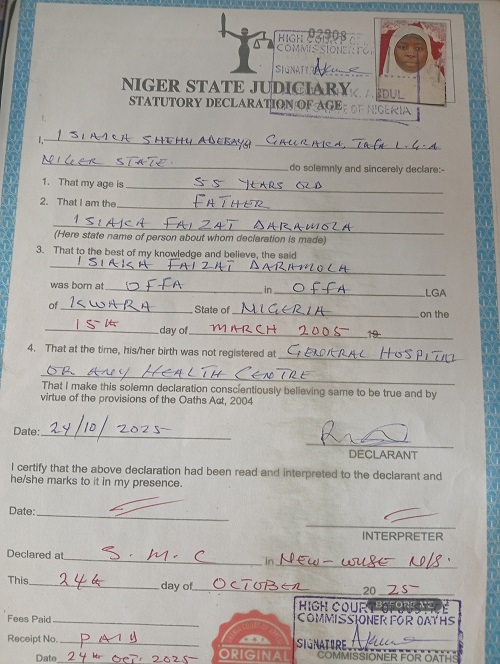 02908
HIGH COURT OF
COMMISSIONER FOR
SIGNATURE
NIGER STATE JUDICIARY
K. ABDUL
STATUTORY DECLARATION OF AGE
OF NIGERIA
I, ISIAKA SHEHU ADEBAYO GAURAKA, TAFA L.G.A
NIGER STATE. do solemnly and sincerely declare:-
1. That my age is 55 YEARS OLD
2. That I am the FATHER
ISIAKA FAIZAT DARAMOLA
(Here state name of person about whom declaration is made)
3. That to the best of my knowledge and believe, the said
ISIAKA FAIZAT DARAMOLA
was born at OFFA in OFFA LGA
of KWARA State of NIGERIA on the
15th day of MARCH 2005 19
4. That at the time, his/her birth was not registered at GENERAL HOSPITAL
OR ANY HEALTH CENTRE
That I make this solemn declaration conscientiously believing same to be true and by
virtue of the provisions of the Oaths Act, 2004
Date: 24/10/2025
DECLARANT
I certify that the above declaration had been read and interpreted to the declarant and
he/she marks to it in my presence.
Date:
INTERPRETER
Declared at S.M.C in NEW-WUSE N/S.
This 24th day of OCTOBER 20 25
BEFORE ME
HIGH COURT OF JUSTICE
COMMISSIONER FOR OATHS
Fees Paid
SIGNATURE
Receipt No. PAID
ORIGINAL
COMMISSIONER FOR OATHS
Date 24th OCT. 2025